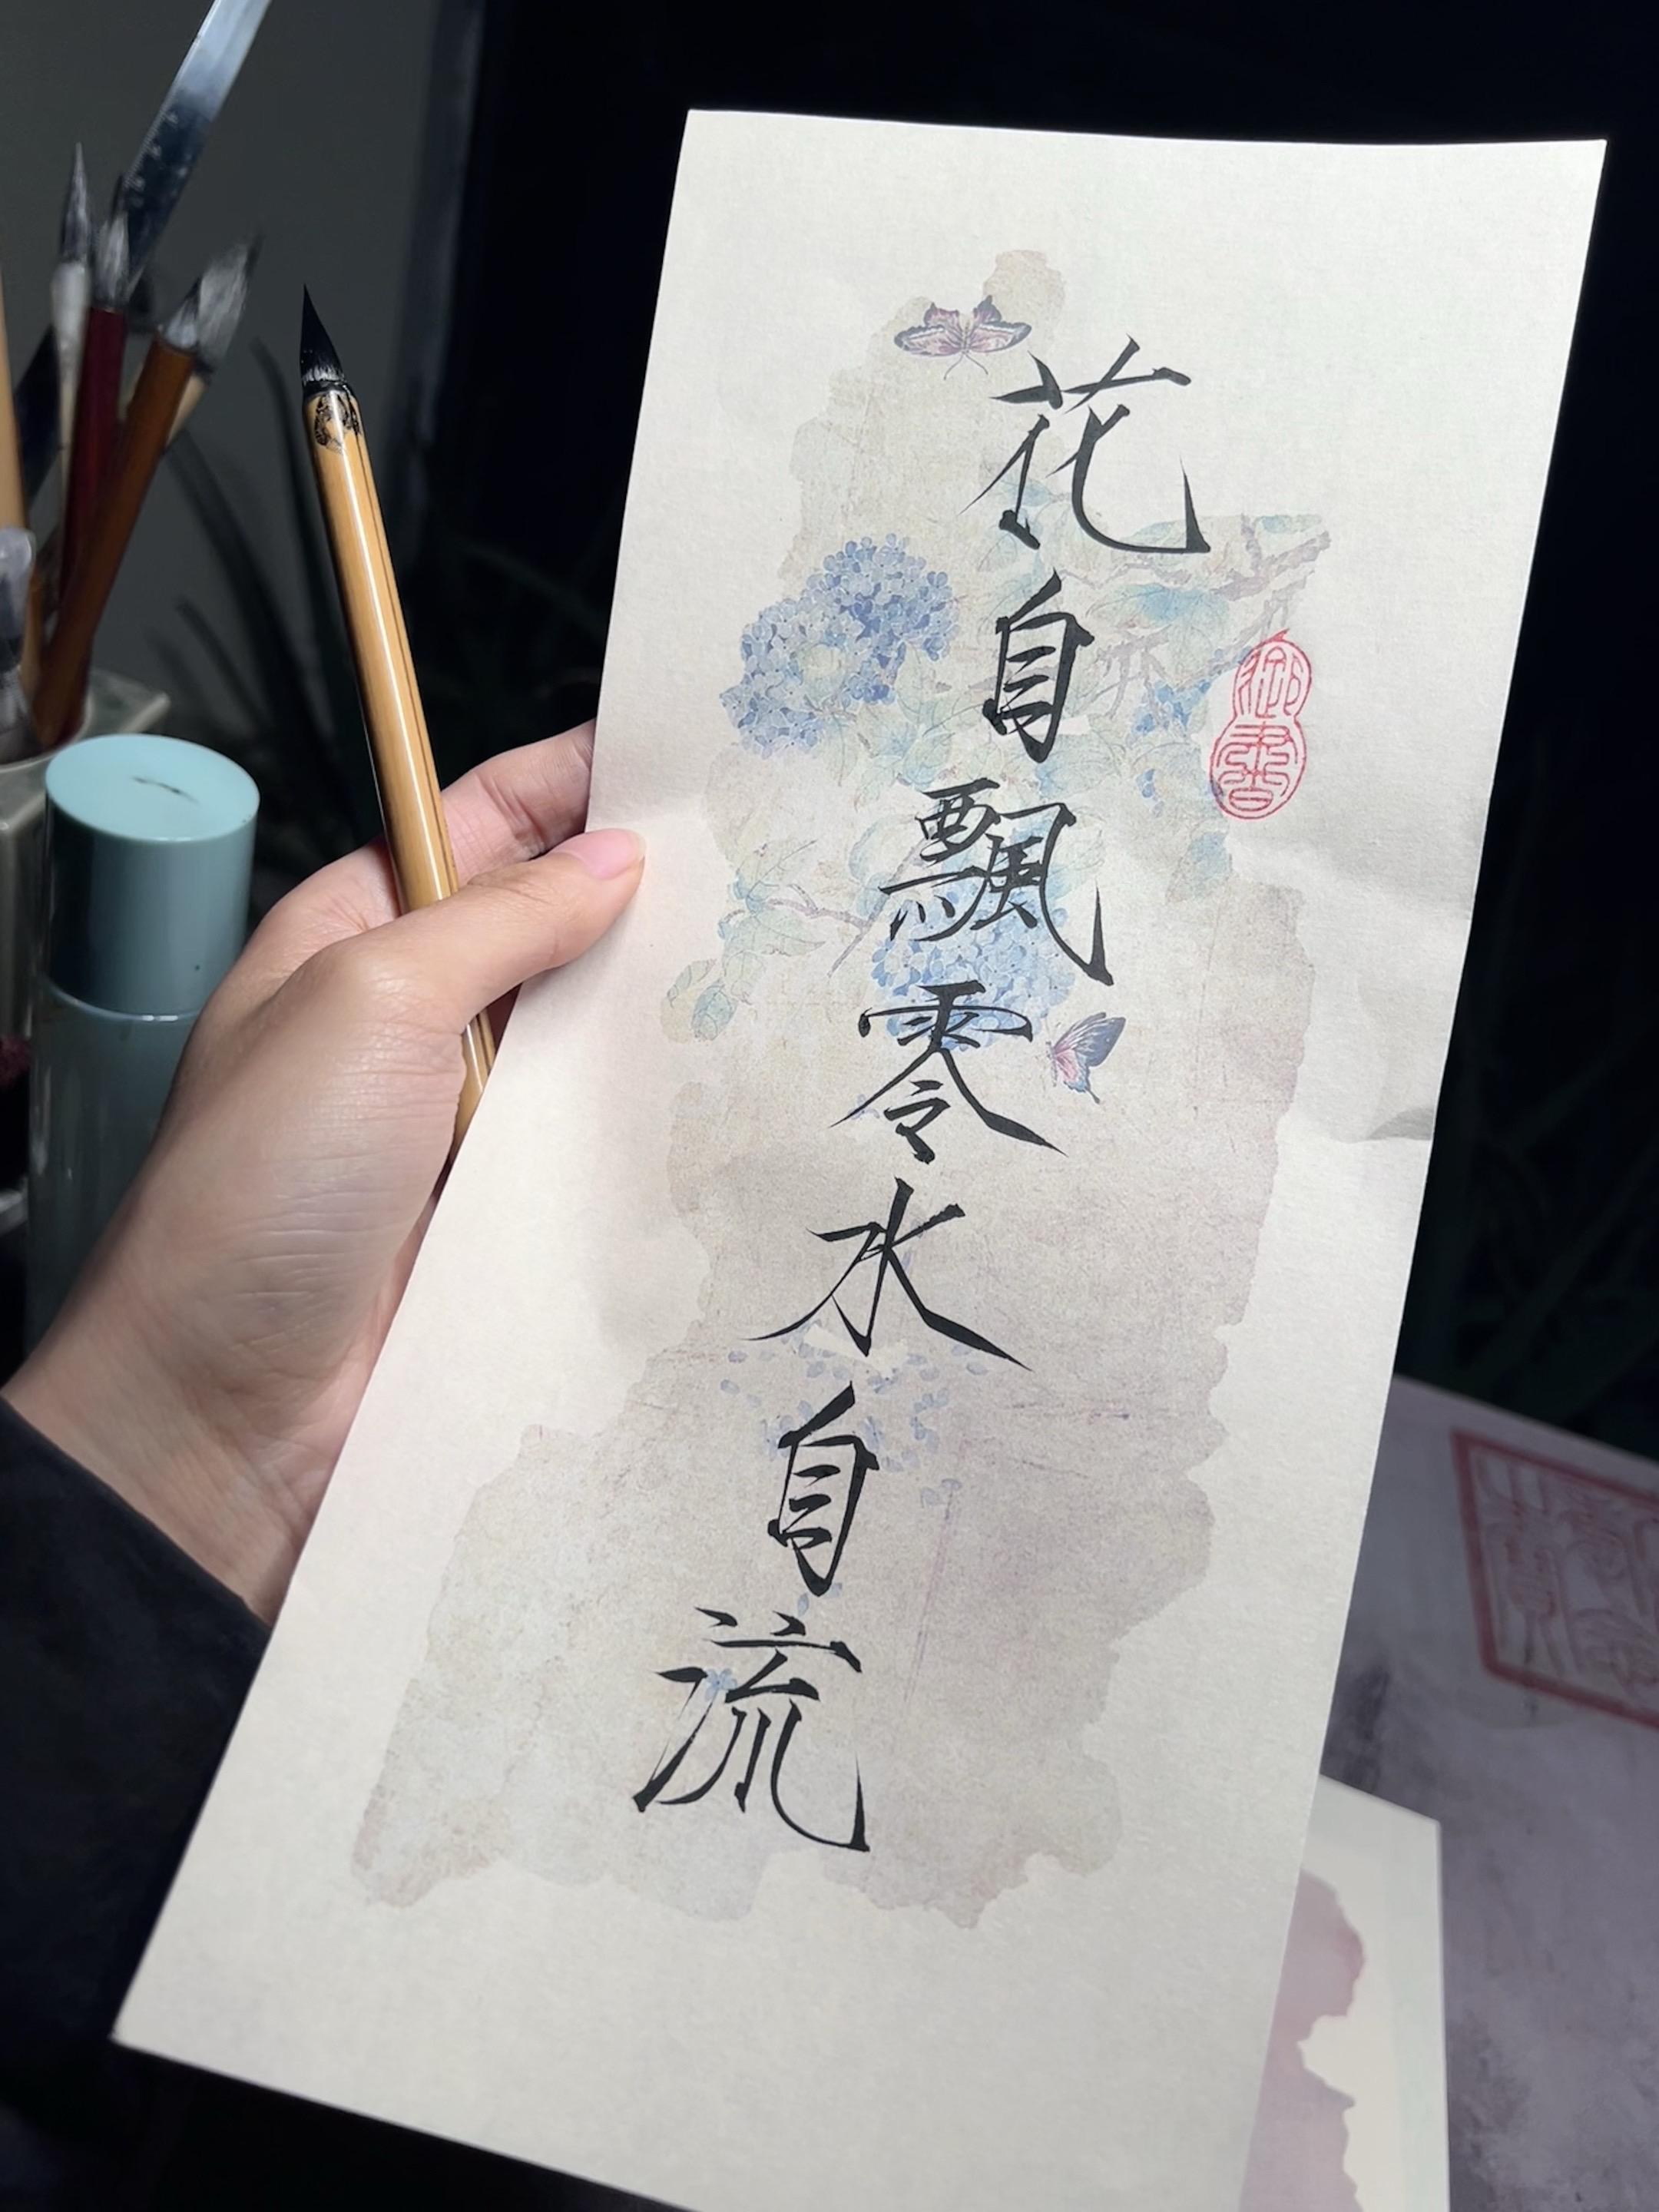 花自飄零水自流